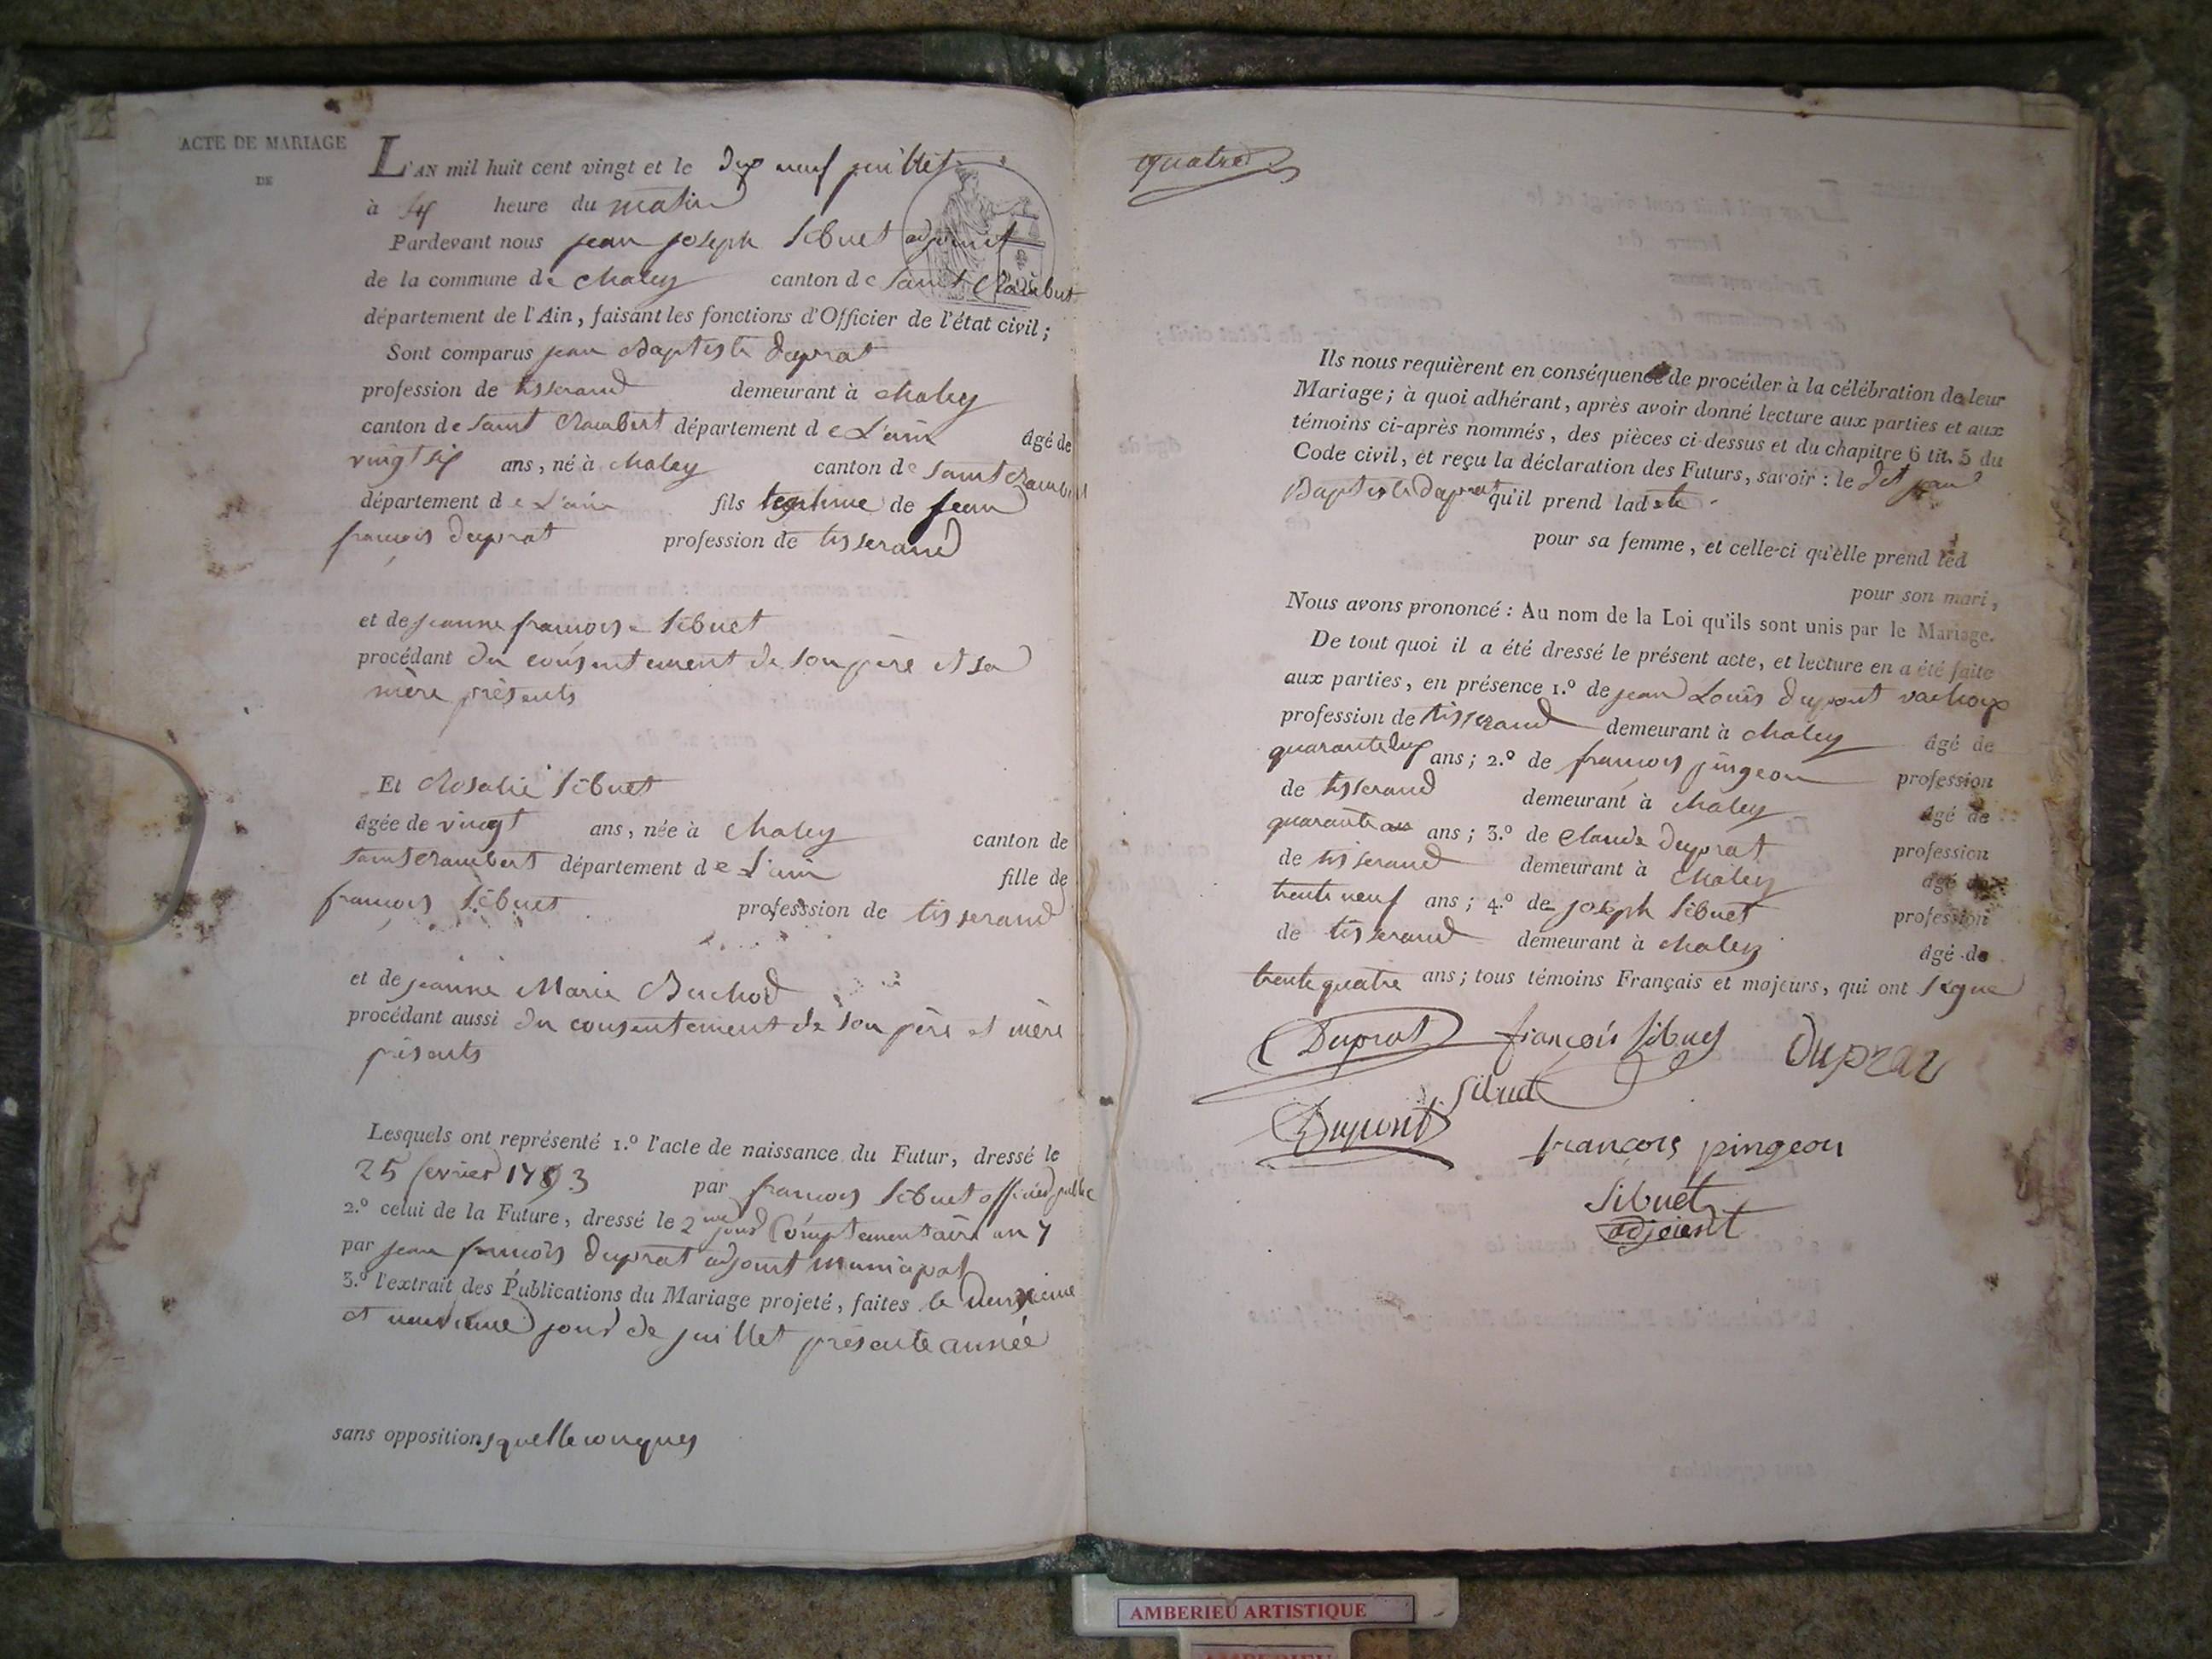 ACTE DE MARIAGE
DE
L'AN mil huit cent vingt et le dix neuf juillet
à heure du matin
Pardevant nous jean joseph Sibuet adjoint
de la commune de chaley canton de saint Rambert
département de l'Ain, faisant les fonctions d'Officier de l'état civil;
Sont comparus jean Baptiste duprat
profession de tisserand demeurant à chaley
canton de saint Rambert département de L'ain âgé de
vingt six ans, né à chaley canton de saint Rambert
département de L'ain fils legitime de jean
francois duprat profession de tisserand
et de jeanne francoise Sibuet
procédant du consentement de son père et sa
mère présents
Et Rosalie Sibuet
âgée de vingt ans, née à chaley canton de
saint Rambert département de L'ain fille de
francois Sibuet professsion de tisserand
et de jeanne Marie Buchod
procédant aussi du consentement de son père et mère
présents
Lesquels ont représenté 1.º l'acte de naissance du Futur, dressé le
25 fevrier 1793 par francois Sibuet officier public
2.º celui de la Future, dressé le 2me jour Complementaire an 7
par jean francois duprat adjoint municipal
3.º l'extrait des Publications du Mariage projeté, faites le deuxieme
et neuvieme jour de juillet présente année
sans oppositions quelleconques
quatre
Ils nous requièrent en conséquence de procéder à la célébration de leur
Mariage; à quoi adhérant, après avoir donné lecture aux parties et aux
témoins ci-après nommés, des pièces ci-dessus et du chapitre 6 tit. 5 du
Code civil, et reçu la déclaration des Futurs, savoir: le dit jean
Baptiste duprat qu'il prend ladite
pour sa femme, et celle-ci qu'elle prend led
pour son mari,
Nous avons prononcé: Au nom de la Loi qu'ils sont unis par le Mariage.
De tout quoi il a été dressé le présent acte, et lecture en a été faite
aux parties, en présence 1.º de jean Louis dupont vachoux
profession de tisserand demeurant à chaley âgé de
quarante dix ans; 2.º de francois pingeon profession
de tisserand demeurant à chaley âgé de
quarante ans; 3.º de claude duprat profession
de tisserand demeurant à chaley âgé de
trente neuf ans; 4.º de joseph Sibuet profession
de tisserand demeurant à chaley âgé de
trente quatre ans; tous témoins Français et majeurs, qui ont signé
Duprat françois Sibuet Duprat
Sibuet
Dupont
francois pingeon
Sibuet
adjoient
AMBERIEU ARTISTIQUE
AMBERIEU